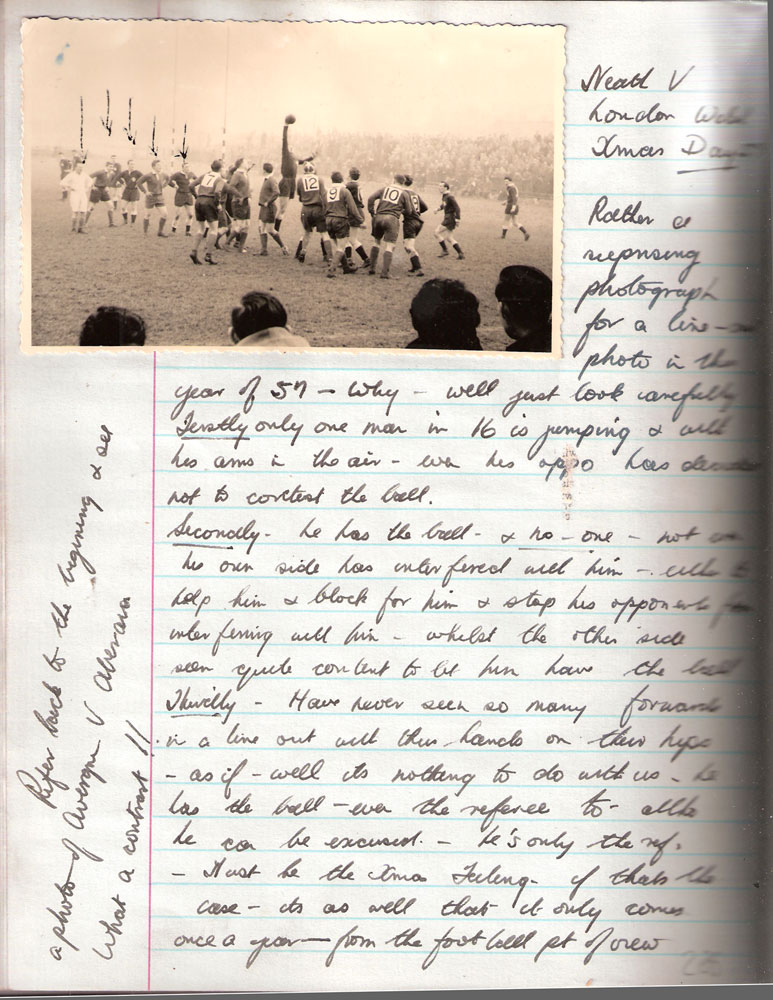 Neath V
London
Xmas Day
Rather a
suprising
photograph
for a line-
photo in the
year of 57 - Why - well just look carefully
Firstly only one man in 16 is jumping & with
his arms in the air - even his oppo has
not to contest the ball.
Secondly - he has the ball - & no-one - not
his own side has interferred with him -
help him & block for him & stop his opponents
interferring with him - whilst the other side
seem quite content to let him have the ball
Thirdly - Have never seen so many forwards
in a line out with their hands on their hips
- as if - well its nothing to do with us - he
has the ball - even the referee to -
he can be excused. - he's only the ref.
- Must be the Xmas Feeling - if thats the
case - its as well that it only comes
once a year - from the foot ball pt of view
Refer back to the begining & see
a photo of V
What a contrast !!
17
12
9
10